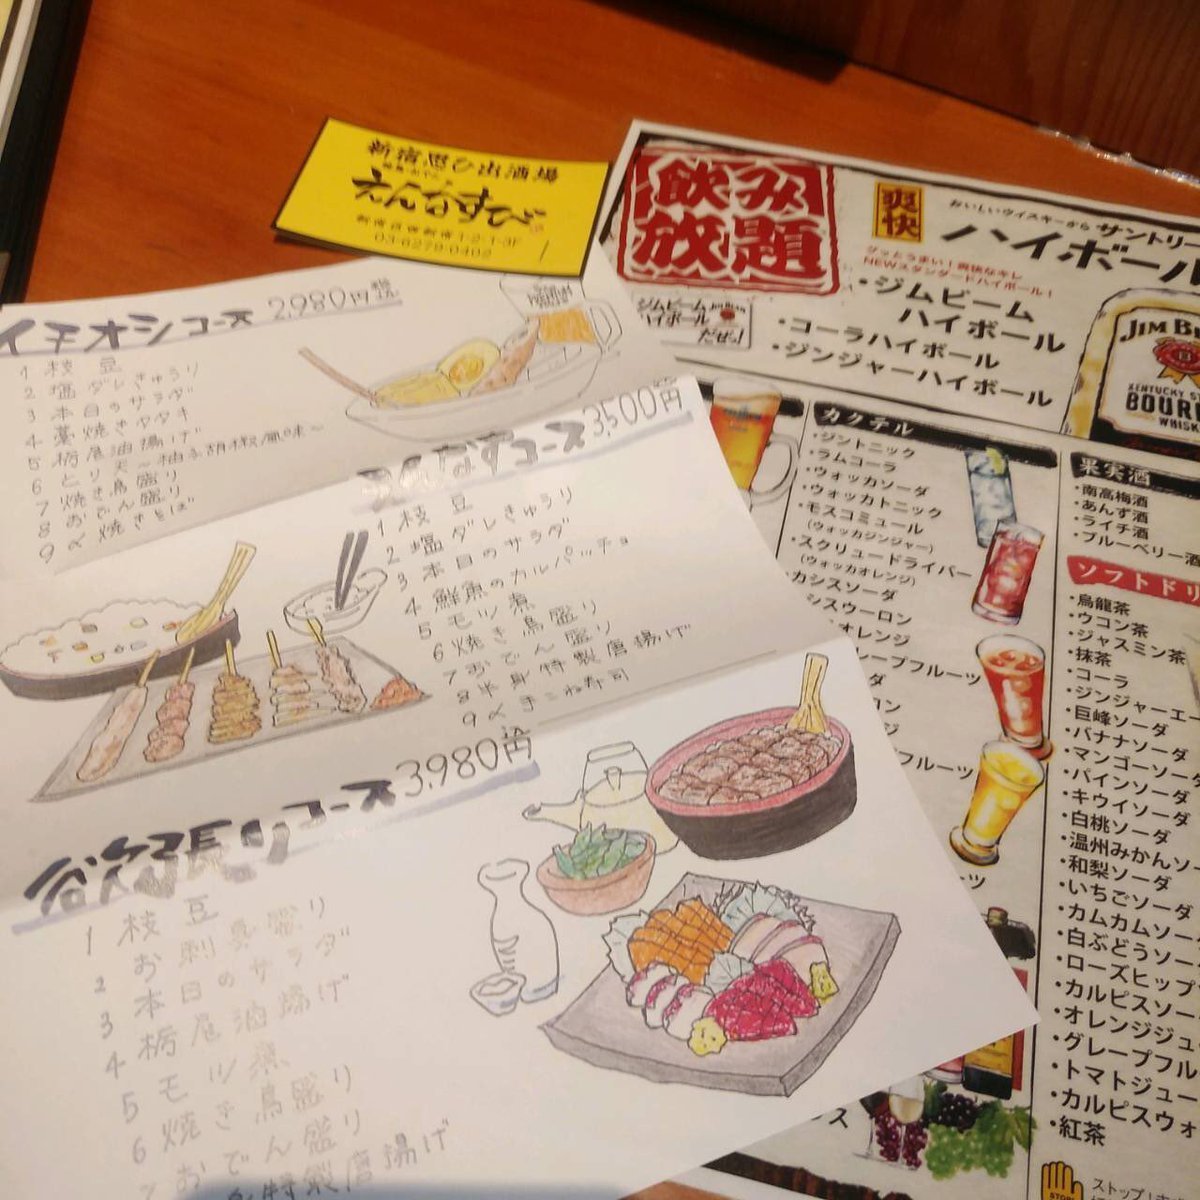 新宿思ひ出酒場
えんなすび
新宿区西新宿1-2-1-3F
03-6279-0402
イチオシコース 2,980円
1 枝豆
2 塩ダレきゅうり
3 本日のサラダ
4 藁焼きタタキ
5 栃尾油揚げ
6 とり天〜柚子胡椒風味〜
7 焼き鳥盛り
8 おでん盛り
9 〆焼きそば
えんなすコース 3,500円
1 枝豆
2 塩ダレきゅうり
3 本日のサラダ
4 鮮魚のカルパッチョ
5 モツ煮
6 焼き鳥盛り
7 おでん盛り
8 半身特製唐揚げ
9 〆手こね寿司
欲張りコース 3,980円
1 枝豆
2 お刺身盛り
3 本日のサラダ
4 栃尾油揚げ
5 モツ煮
6 焼き鳥盛り
7 おでん盛り
特製唐揚げ
飲み放題
爽快
おいしいウイスキーから サントリー
ハイボール
グッとうまい!爽快なキレ
NEWスタンダードハイボール!
・ジムビーム
ハイボール
・コーラハイボール
・ジンジャーハイボール
ジムビーム
ハイボール
だぜっ!
JIM BE
KENTUCKY
BOUR
WHISK
カクテル
・ジントニック
・ラムコーラ
・ウォッカソーダ
・ウォッカトニック
・モスコミュール
(ウォッカジンジャー)
・スクリュードライバー
(ウォッカオレンジ)
・カシスソーダ
シスウーロン
オレンジ
レープフルーツ
果実酒
・南高梅酒
・あんず酒
・ライチ酒
・ブルーベリー酒
ソフトドリ
・烏龍茶
・ウコン茶
・ジャスミン茶
・抹茶
・コーラ
・ジンジャーエー
・巨峰ソーダ
・バナナソーダ
・マンゴーソーダ
・パインソーダ
・キウイソーダ
・白桃ソーダ
・温州みかんソー
・和梨ソーダ
・いちごソーダ
・カムカムソー
・白ぶどうソー
・ローズヒップ
・カルピスソー
・オレンジジュ
・グレープフル
・トマトジュー
・カルピスウォ
・紅茶
STOP!
ストップ!